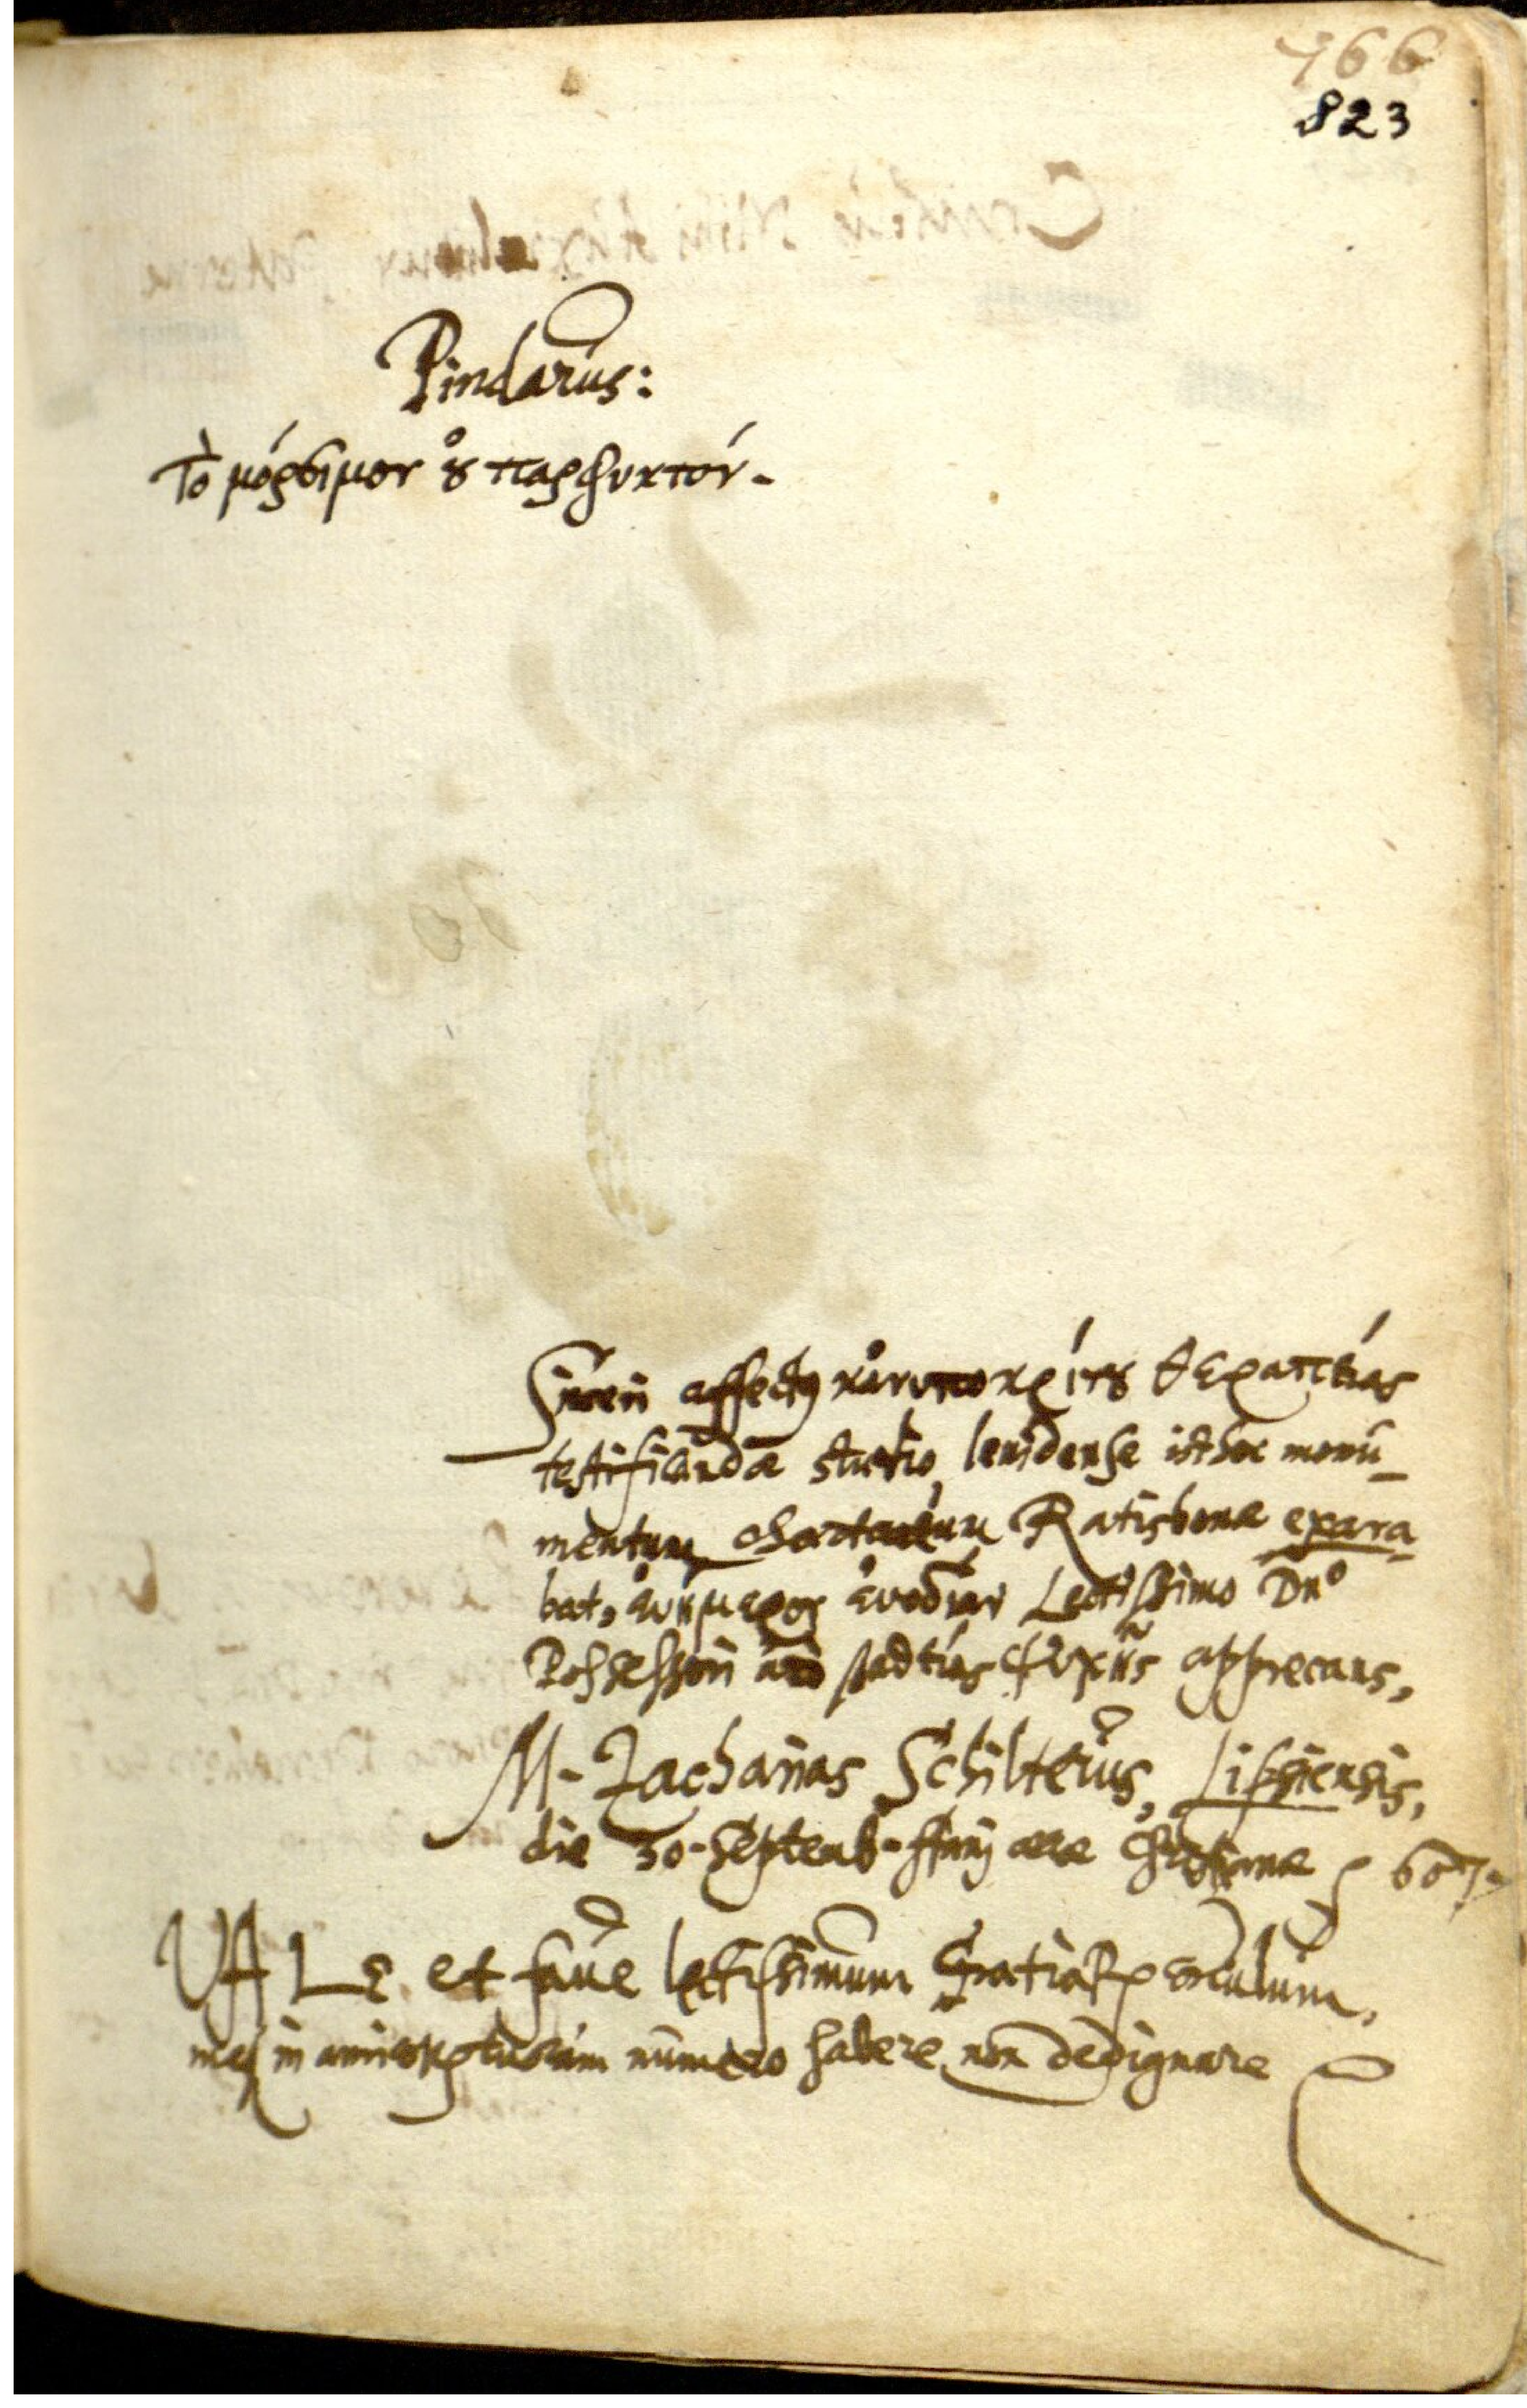 766
823
Pindarus:
Τὸ μόρσιμον ȣ̓ παρφυκτόν.
Sinceri affectus κἀνυποκρίτȣ θεραπείας
testificandæ studio, levidense isthoc monu-
mentum chartaceum Ratisbonæ exara-
bat, ἀνήμερον εὐοδίαν Lectissimo Dnº
Possessori ψυχῆς apprecans,
M. Zacharias Schilterus, Lipsiensis,
die 30. Septemb. anni æræ Christianæ 1607.
VALE et fave lectissimum Gratiar. corculum,
meq; in amicor. tuorum numero habere non dedignare